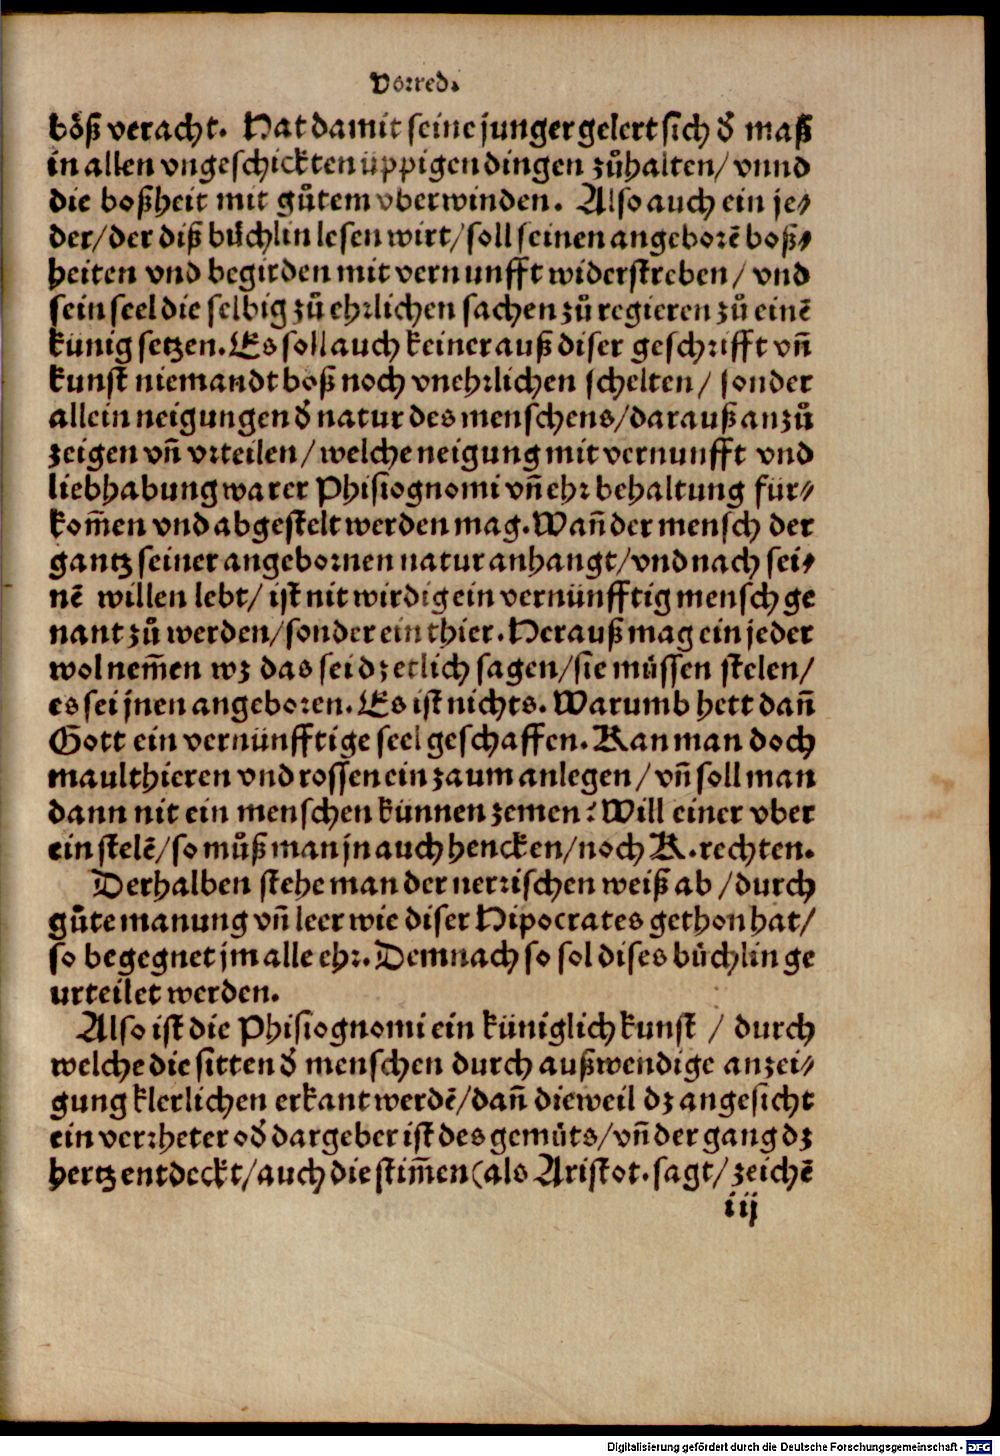 Vorred.
böß veracht. Hat damit seine junger gelert sich đ maß
in allen vngeschickten üppigen dingen zůhalten/ vnnd
die boßheit mit gůtem vberwinden. Also auch ein je⸗
der/ der diß bůchlin lesen wirt/ soll seinen angeborē boß⸗
heiten vnd begirden mit vernunfft widerstreben/ vnd
sein seel die selbig zů ehrlichen sachen zů regieren zů einē
künig setzen. Es soll auch keiner auß diser geschrifft vñ
kunst niemandt boß noch vnehrlichen schelten/ sonder
allein neigungen đ natur des menschens/ darauß anzů
zeigen vñ vrteilen/ welche neigung mit vernunfft vnd
liebhabung warer Phisiognomi vñ ehr behaltung für⸗
kom̄en vnd abgestelt werden mag. Wañ der mensch der
gantz seiner angebornen natur anhangt/ vnd nach sei⸗
nē willen lebt/ ist nit wirdig ein vernünfftig mensch ge
nant zů werden/ sonder ein thier. Herauß mag ein jeder
wol nem̄en wz das sei dz etlich sagen/ sie müssen stelen/
es sei jnen angeboren. Es ist nichts. Warumb hett dañ
Gott ein vernünfftige seel geschaffen. Kan man doch
maulthieren vnd rossen ein zaum anlegen/ vñ soll man
dann nit ein menschen künnen zemen? Will einer vber
ein stelē/ so můß man jn auch hencken/ noch K. rechten.
Derhalben stehe man der nerrischen weiß ab/ durch
gůte manung vñ leer wie diser Hipocrates gethon hat/
so begegnet jm alle ehr. Demnach so sol dises bůchlin ge
urteilet werden.
Also ist die Phisiognomi ein küniglich kunst/ durch
welche die sitten đ menschen durch außwendige anzei⸗
gung klerlichen erkant werdē/ dañ dieweil dz angesicht
ein verrheter ođ dargeber ist des gemůts/ vñ der gang dz
hertz entdeckt/ auch die stim̄en (als Aristot. sagt/ zeichē
iij
Digitalisierung gefördert durch die Deutsche Forschungsgemeinschaft - DFG